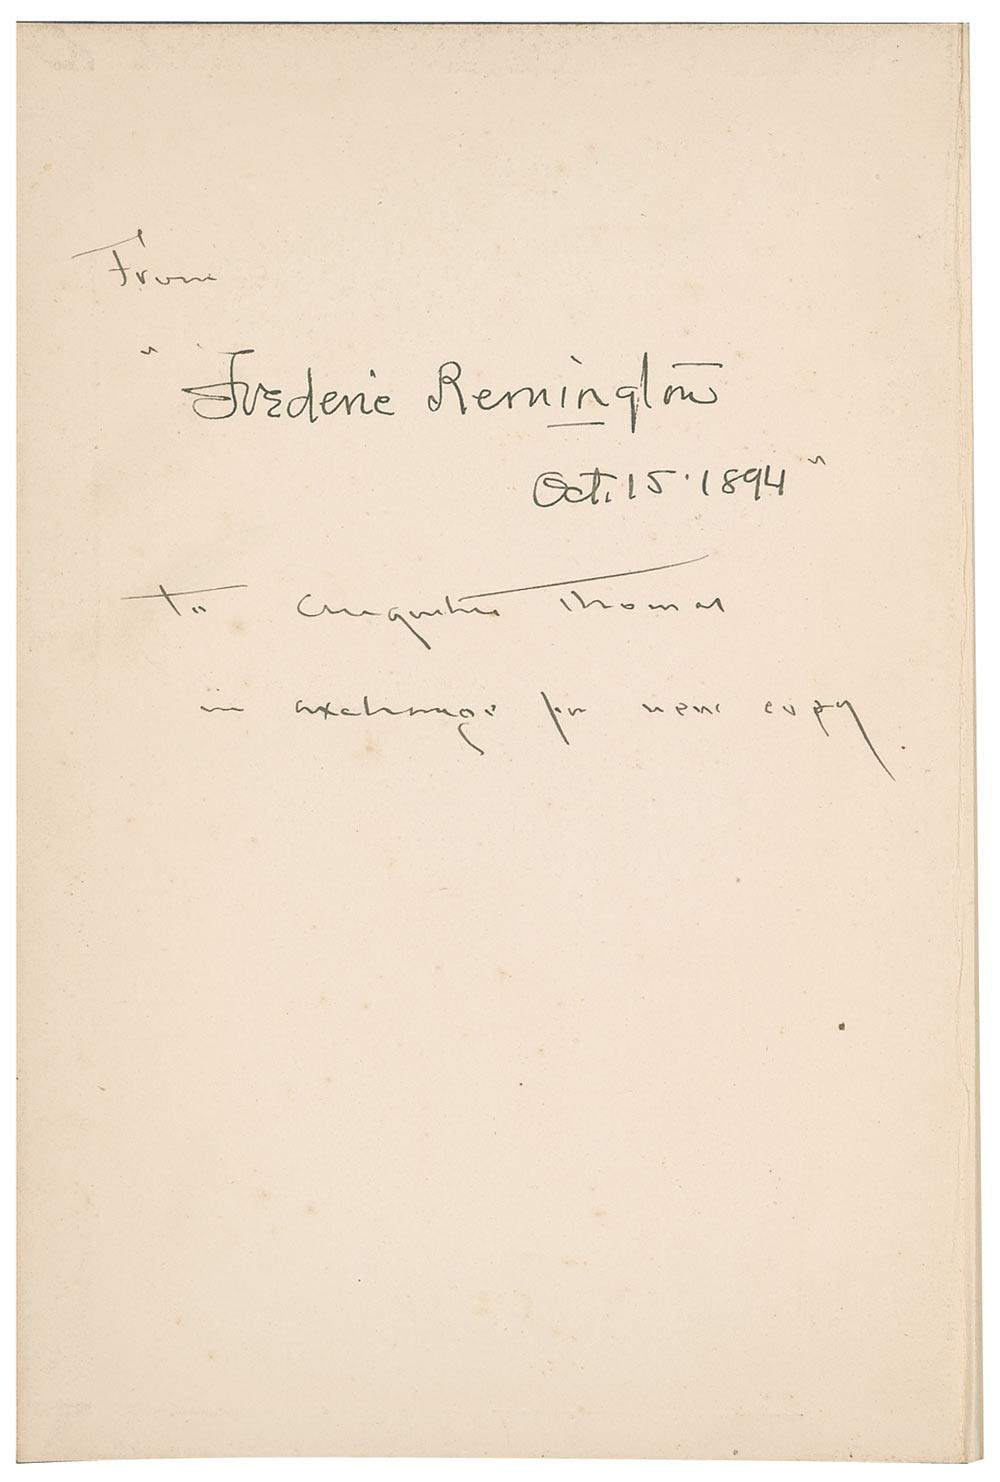 From
" Frederic Remington
Oct. 15 · 1894 "
To Augustus Thomas
in exchange for new copy.